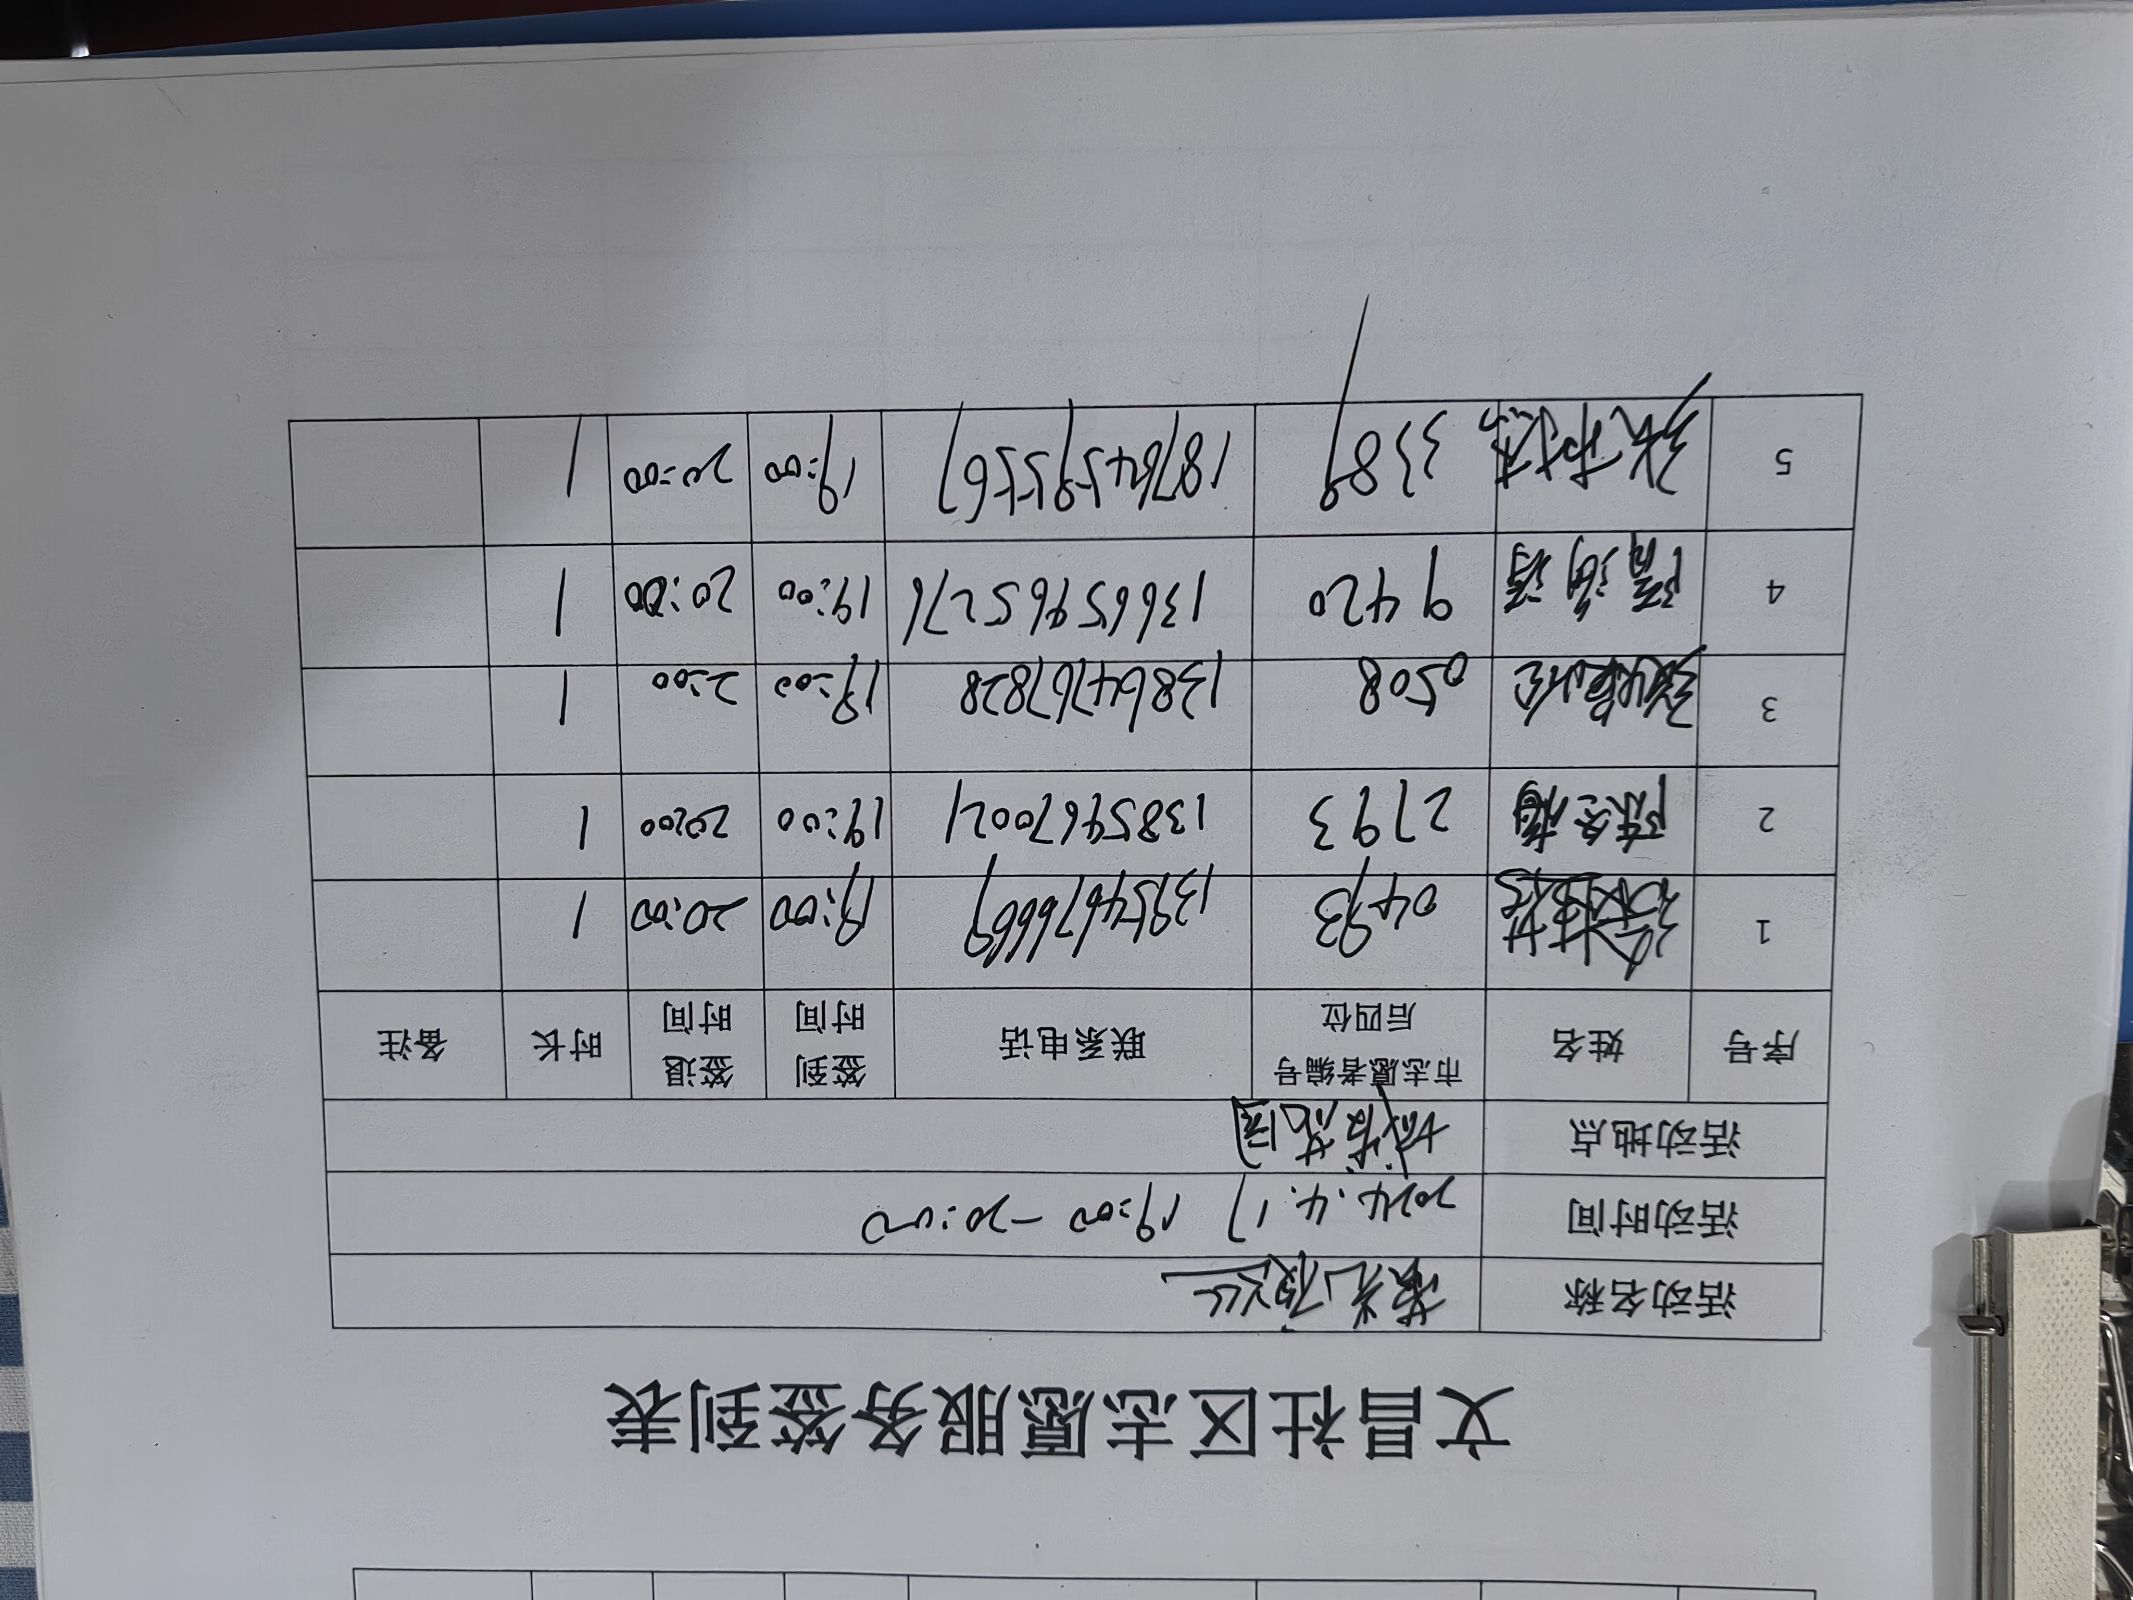 文昌社区志愿服务签到表
活动名称
活动时间 2024.4.17 19:00-20:00
活动地点 花园
序号 姓名 市志愿者编号后四位 联系电话 签到时间 签退时间 时长 备注
1 0493 13954676669 19:00 20:00 1
2 2793 13859467002 19:00 20:00 1
3 0508 13864767828 19:00 2:00 1
4 9420 13665965276 19:00 20:00 1
5 3389 18764595567 19:00 20:00 1